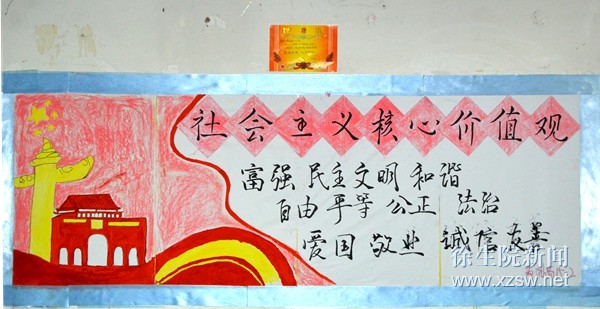 社会主义核心价值观
富强 民主 文明 和谐
自由 平等 公正 法治
爱国 敬业 诚信 友善
徐生院新闻
www.xzsw.net